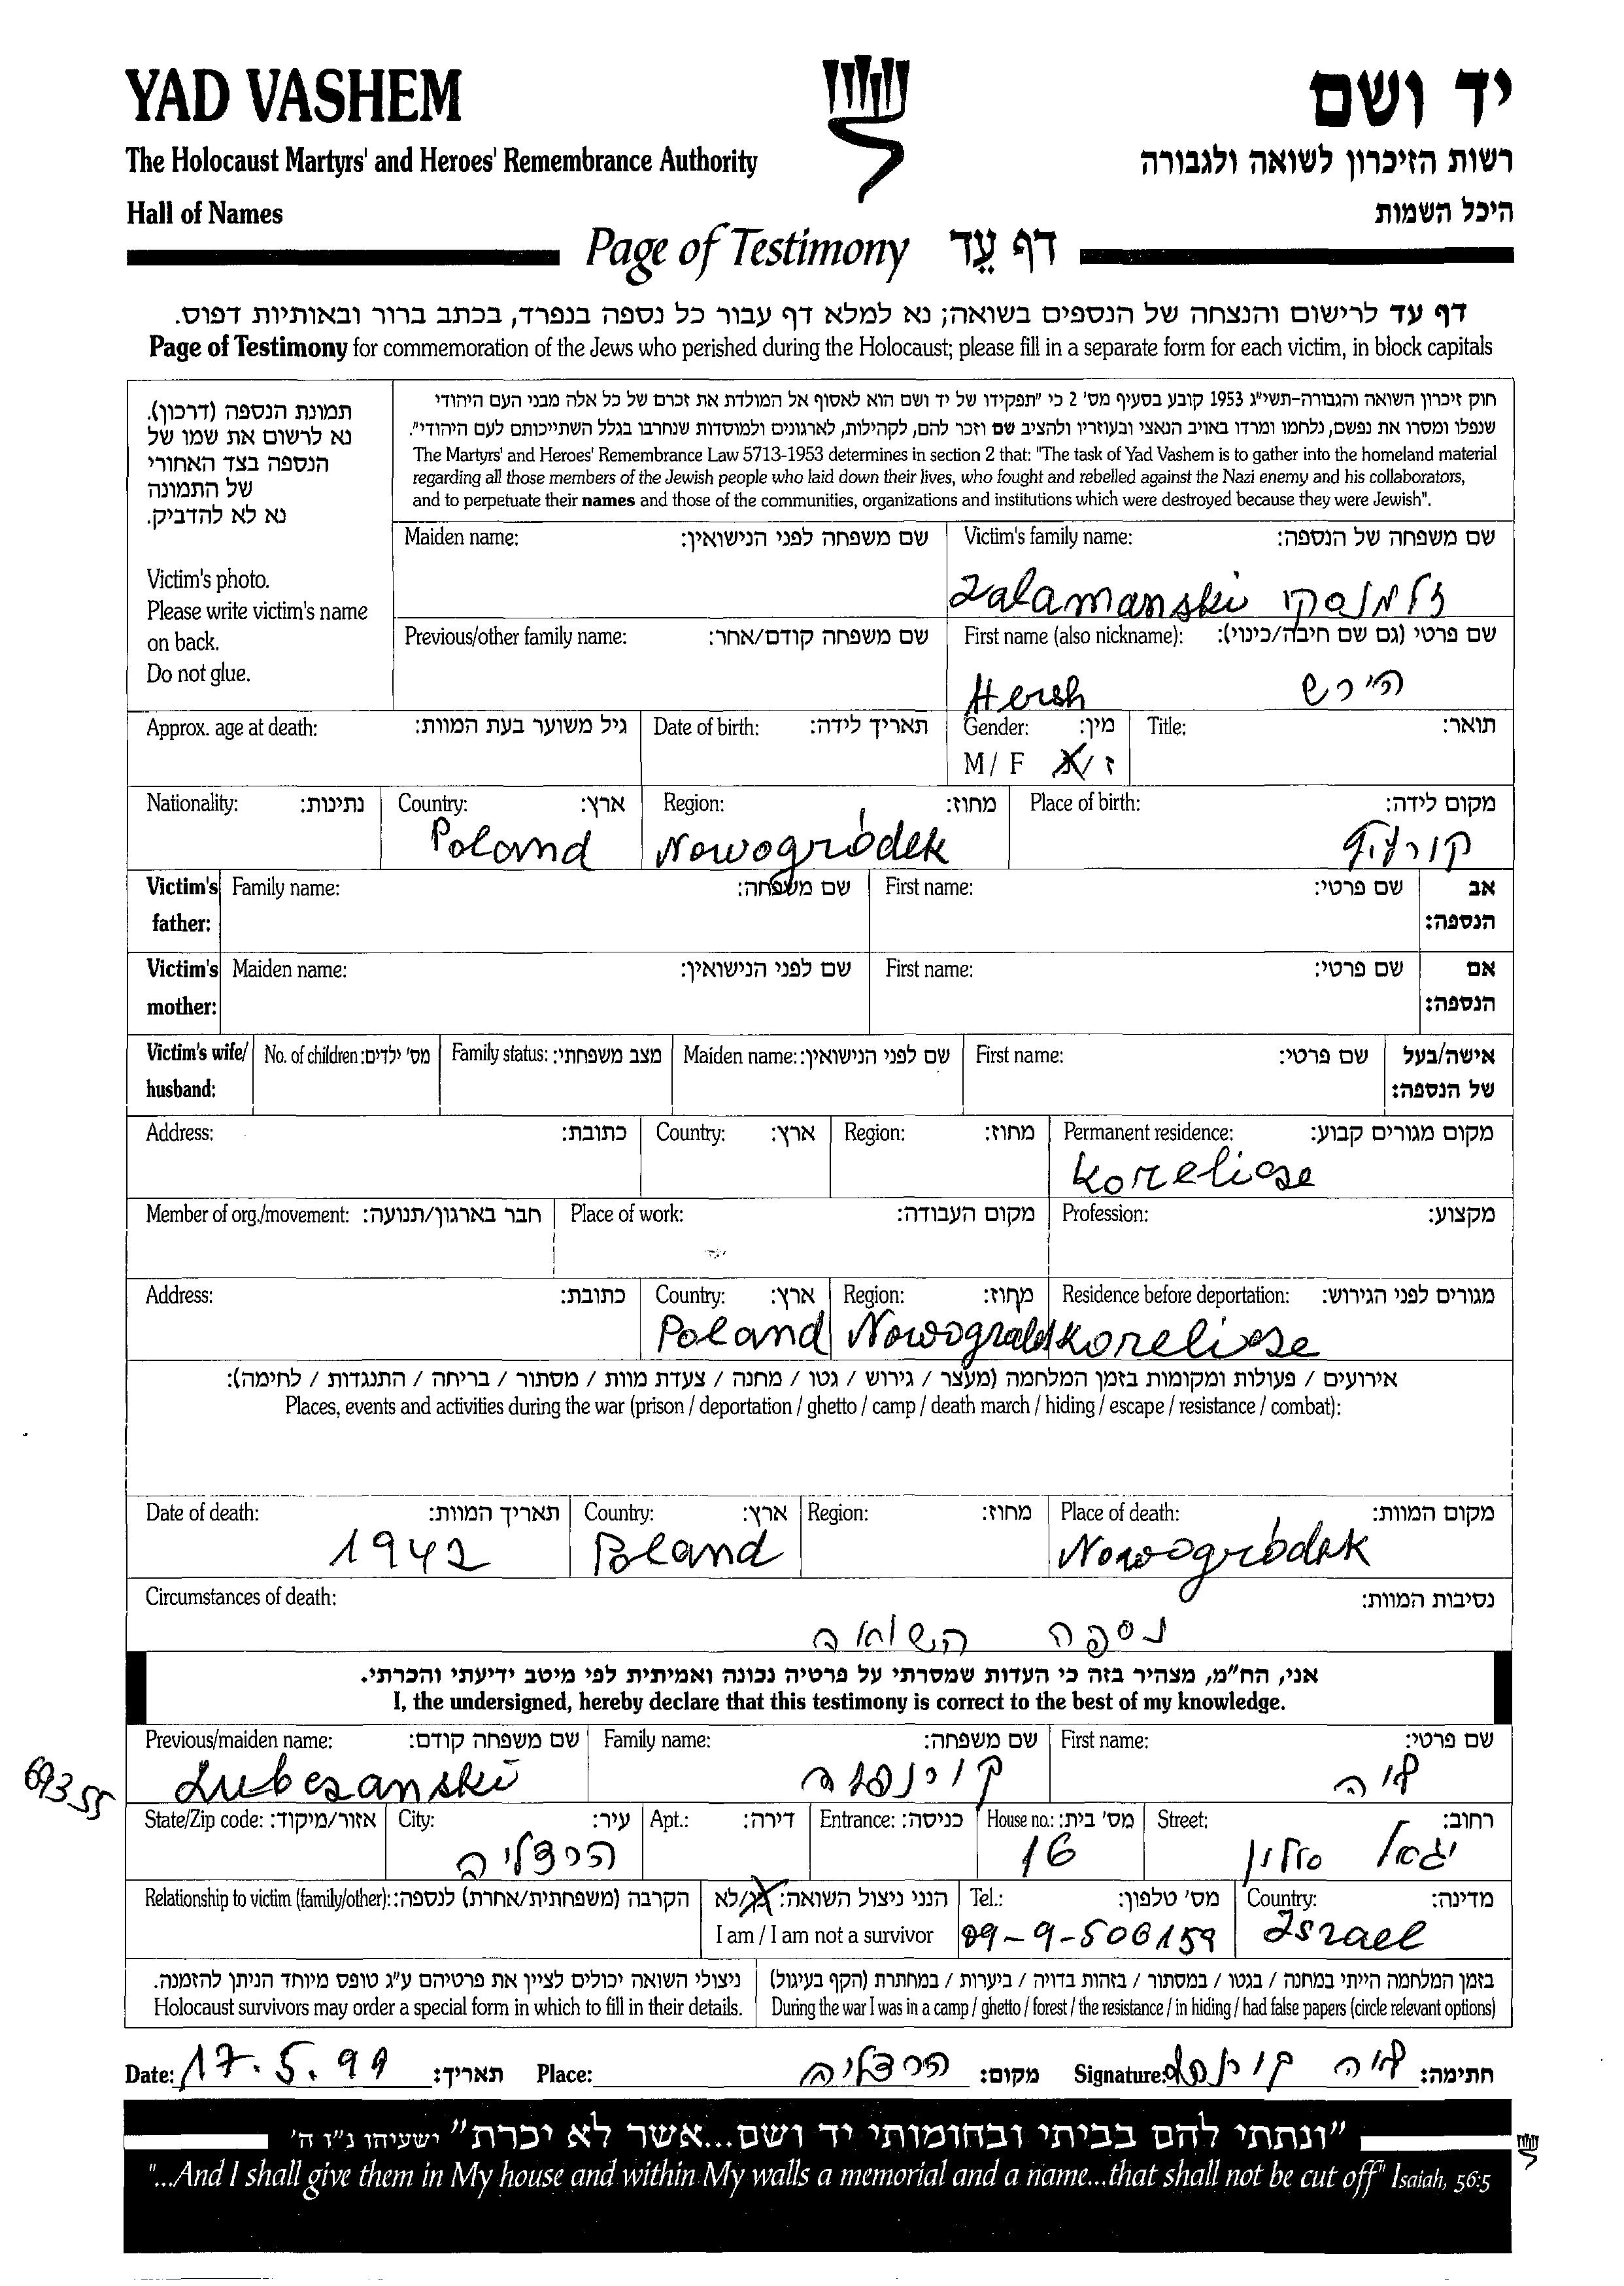 YAD VASHEM
יד ושם
The Holocaust Martyrs' and Heroes' Remembrance Authority
רשות הזיכרון לשואה ולגבורה
Hall of Names
היכל השמות
Page of Testimony דף עֵד
דף עד לרישום והנצחה של הנספים בשואה; נא למלא דף עבור כל נספה בנפרד, בכתב ברור ובאותיות דפוס.
Page of Testimony for commemoration of the Jews who perished during the Holocaust; please fill in a separate form for each victim, in block capitals
תמונת הנספה (דרכון).
נא לרשום את שמו של
הנספה בצד האחורי
של התמונה
נא לא להדביק.
Victim's photo.
Please write victim's name
on back.
Do not glue.
חוק זיכרון השואה והגבורה-תשי"ג 1953 קובע בסעיף מס' 2 כי "תפקידו של יד ושם הוא לאסוף אל המולדת את זכרם של כל אלה מבני העם היהודי
שנפלו ומסרו את נפשם, נלחמו ומרדו באויב הנאצי ובעוזריו ולהציב שם וזכר להם, לקהילות, לארגונים ולמוסדות שנחרבו בגלל השתייכותם לעם היהודי".
The Martyrs' and Heroes' Remembrance Law 5713-1953 determines in section 2 that: "The task of Yad Vashem is to gather into the homeland material
regarding all those members of the Jewish people who laid down their lives, who fought and rebelled against the Nazi enemy and his collaborators,
and to perpetuate their names and those of the communities, organizations and institutions which were destroyed because they were Jewish".
Maiden name: שם משפחה לפני הנישואין: Victim's family name: שם משפחה של הנספה:
Zalamanski זלמנסקי
Previous/other family name: שם משפחה קודם/אחר: First name (also nickname): שם פרטי (גם שם חיבה/כינוי):
Hersh הירש
Approx. age at death: גיל משוער בעת המוות: Date of birth: תאריך לידה: Gender: מין: Title: תואר:
M / F ז/נ
Nationality: נתינות: Country: ארץ: Region: מחוז: Place of birth: מקום לידה:
Poland Nowogródek
Victim's father: Family name: שם משפחה: First name: שם פרטי: אב הנספה:
Victim's mother: Maiden name: שם לפני הנישואין: First name: שם פרטי: אם הנספה:
Victim's wife/ husband: No. of children: מס' ילדים: Family status: מצב משפחתי: Maiden name: שם לפני הנישואין: First name: שם פרטי: אישה/בעל של הנספה:
Address: כתובת: Country: ארץ: Region: מחוז: Permanent residence: מקום מגורים קבוע:
Korelicse
Member of org./movement: חבר בארגון/תנועה: Place of work: מקום העבודה: Profession: מקצוע:
Address: כתובת: Country: ארץ: Region: מחוז: Residence before deportation: מגורים לפני הגירוש:
Poland Korelicse
אירועים / פעולות ומקומות בזמן המלחמה (מעצר / גירוש / גטו / מחנה / צעדת מוות / מסתור / בריחה / התנגדות / לחימה):
Places, events and activities during the war (prison / deportation / ghetto / camp / death march / hiding / escape / resistance / combat):
Date of death: תאריך המוות: Country: ארץ: Region: מחוז: Place of death: מקום המוות:
1942 Poland Nowogródek
Circumstances of death: נסיבות המוות:
נספה השואה
אני, הח"מ, מצהיר בזה כי העדות שמסרתי על פרטיה נכונה ואמיתית לפי מיטב ידיעתי והכרתי.
I, the undersigned, hereby declare that this testimony is correct to the best of my knowledge.
Previous/maiden name: שם משפחה קודם: Family name: שם משפחה: First name: שם פרטי:
69355
Lubczanski
State/Zip code: אזור/מיקוד: City: עיר: Apt.: דירה: Entrance: כניסה: House no.: מס' בית: Street: רחוב:
הרצליה 16 יגאל אלון
Relationship to victim (family/other): הקרבה (משפחתית/אחרת) לנספה: הנני ניצול השואה: כן/לא Tel.: מס' טלפון: Country: מדינה:
I am / I am not a survivor 09-9-506159 Israel
ניצולי השואה יכולים לציין את פרטיהם ע"ג טופס מיוחד הניתן להזמנה.
Holocaust survivors may order a special form in which to fill in their details.
בזמן המלחמה הייתי במחנה / בגטו / במסתור / בזהות בדויה / ביערות / במחתרת (הקף בעיגול)
During the war I was in a camp / ghetto / forest / the resistance / in hiding / had false papers (circle relevant options)
Date: 17.5.99 תאריך: Place: הרצליה מקום: Signature: חתימה:
"ונתתי להם בביתי ובחומותי יד ושם...אשר לא יכרת" ישעיהו נ"ו ה'
"...And I shall give them in My house and within My walls a memorial and a name...that shall not be cut off" Isaiah, 56:5